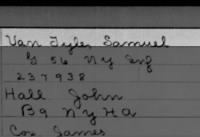 Van Tyle, Samuel
G 56 N Y Inf
237938
Hall John
B 9 N Y H A
Cox James